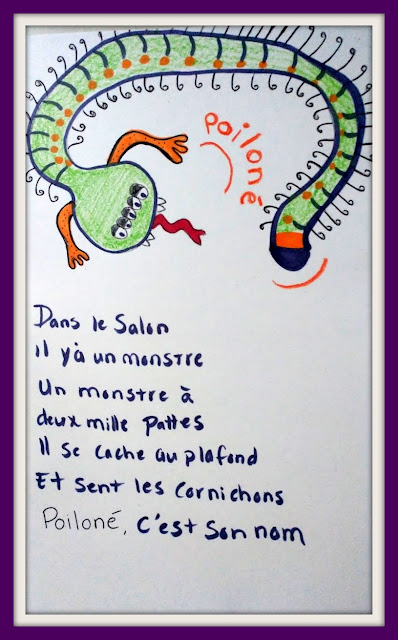 Poiloné
Dans le Salon
il y'à un monstre
Un monstre à
deux mille pattes
Il se cache au plafond
Et sent les Cornichons
Poiloné, c'est son nom